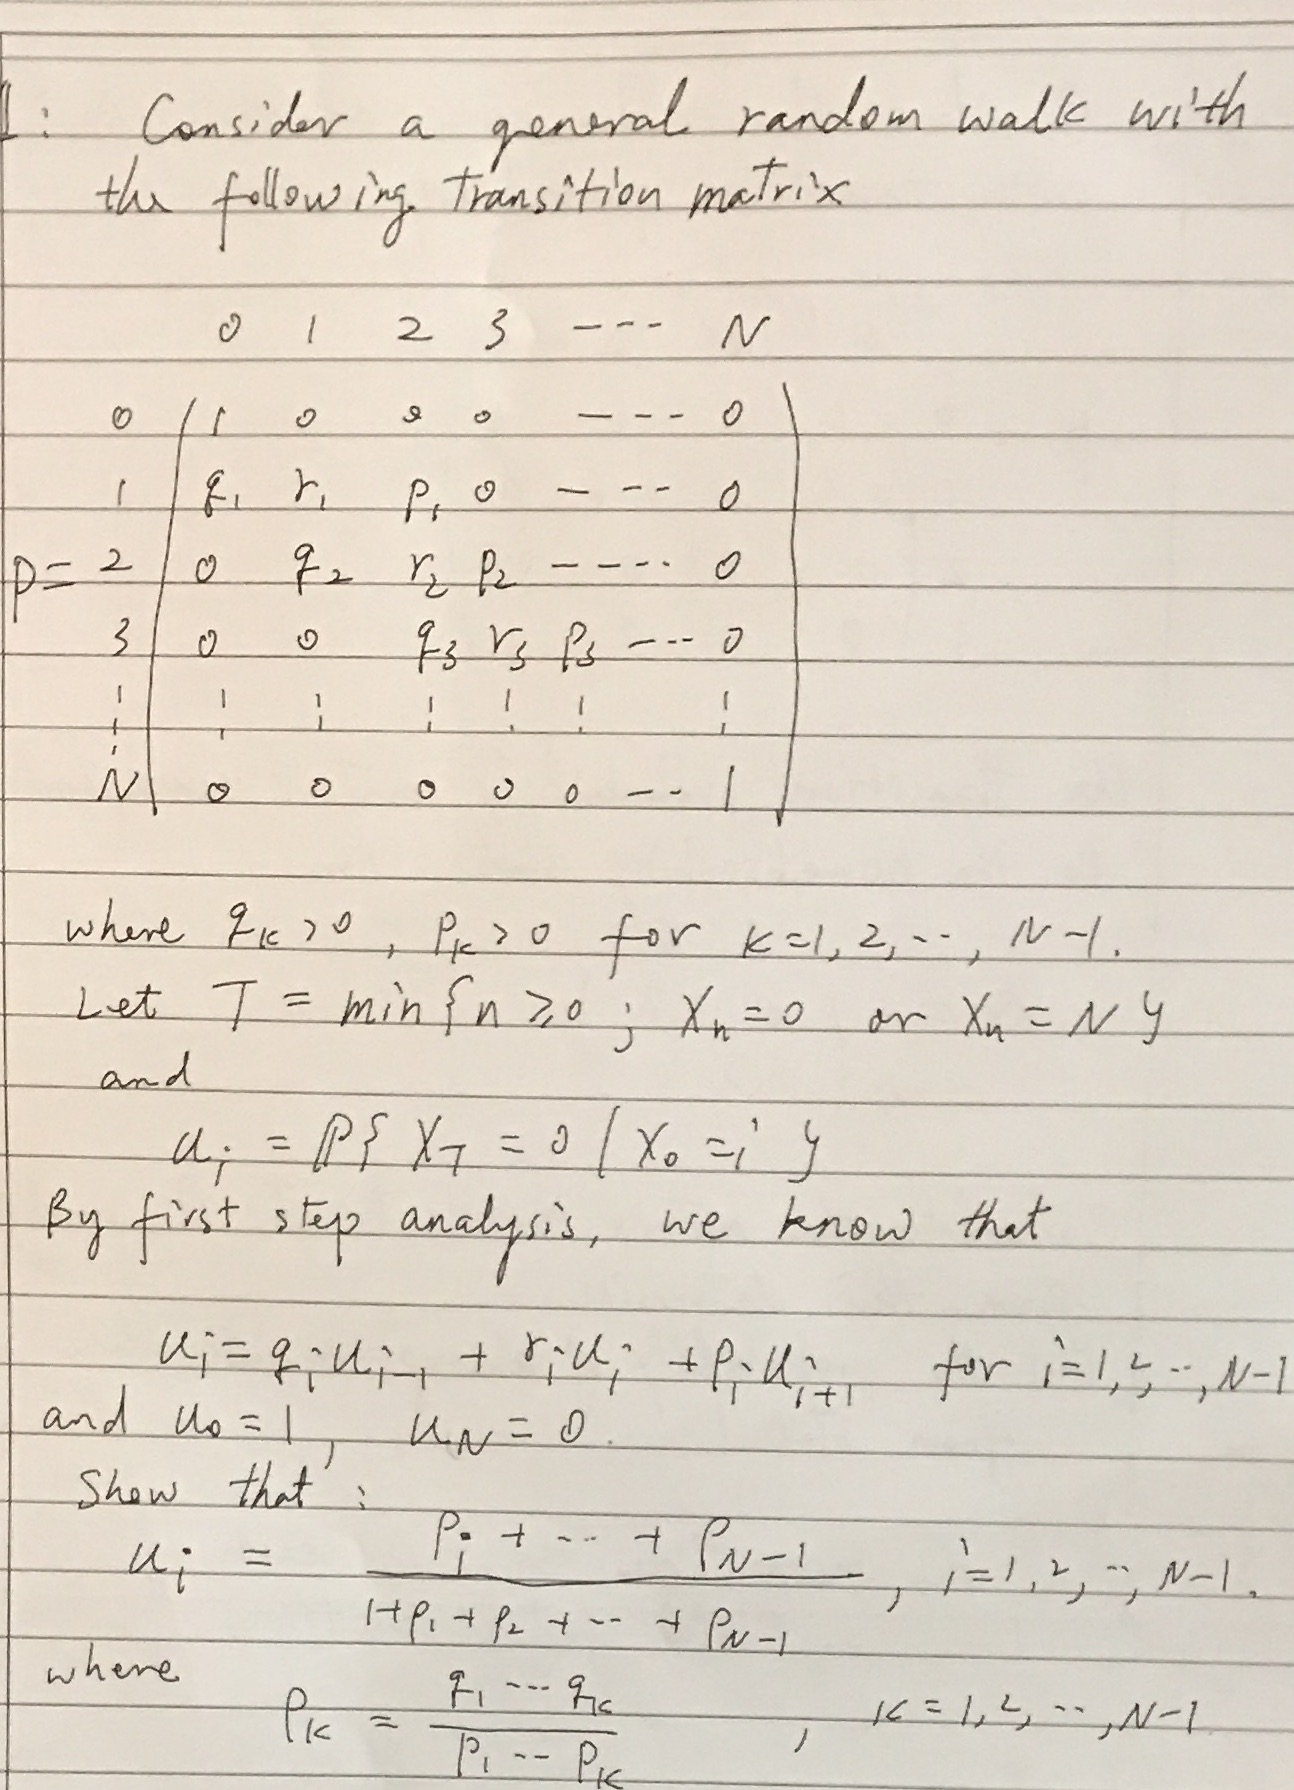 1: Consider a general random walk with
the following Transition matrix
0 1 2 3 ---- N
0 1 0 0 0 ---- 0
1 q₁ r₁ p₁ 0 ---- 0
P= 2 0 q₂ r₂ p₂ ----- 0
3 0 0 q₃ r₃ p₃ --- 0
⋮ ⋮ ⋮ ⋮ ⋮ ⋮ ⋮
N 0 0 0 0 0 --- 1
where qₖ>0, pₖ>0 for k=1, 2, --, N-1.
Let T = min{n≥0; Xₙ=0 or Xₙ=N}
and
uᵢ = ℙ{X_T = 0 / X₀=i}
By first step analysis, we know that
uᵢ = qᵢuᵢ₋₁ + rᵢuᵢ + pᵢuᵢ₊₁ for i=1, 2, --, N-1
and u₀=1, u_N=0.
Show that:
uᵢ = (ρᵢ + --- + ρ_{N-1}) / (1+ρ₁+ρ₂+ --- + ρ_{N-1}), i=1, 2, --, N-1.
where
ρₖ = (q₁ --- qₖ) / (p₁ --- pₖ), k=1, 2, --, N-1